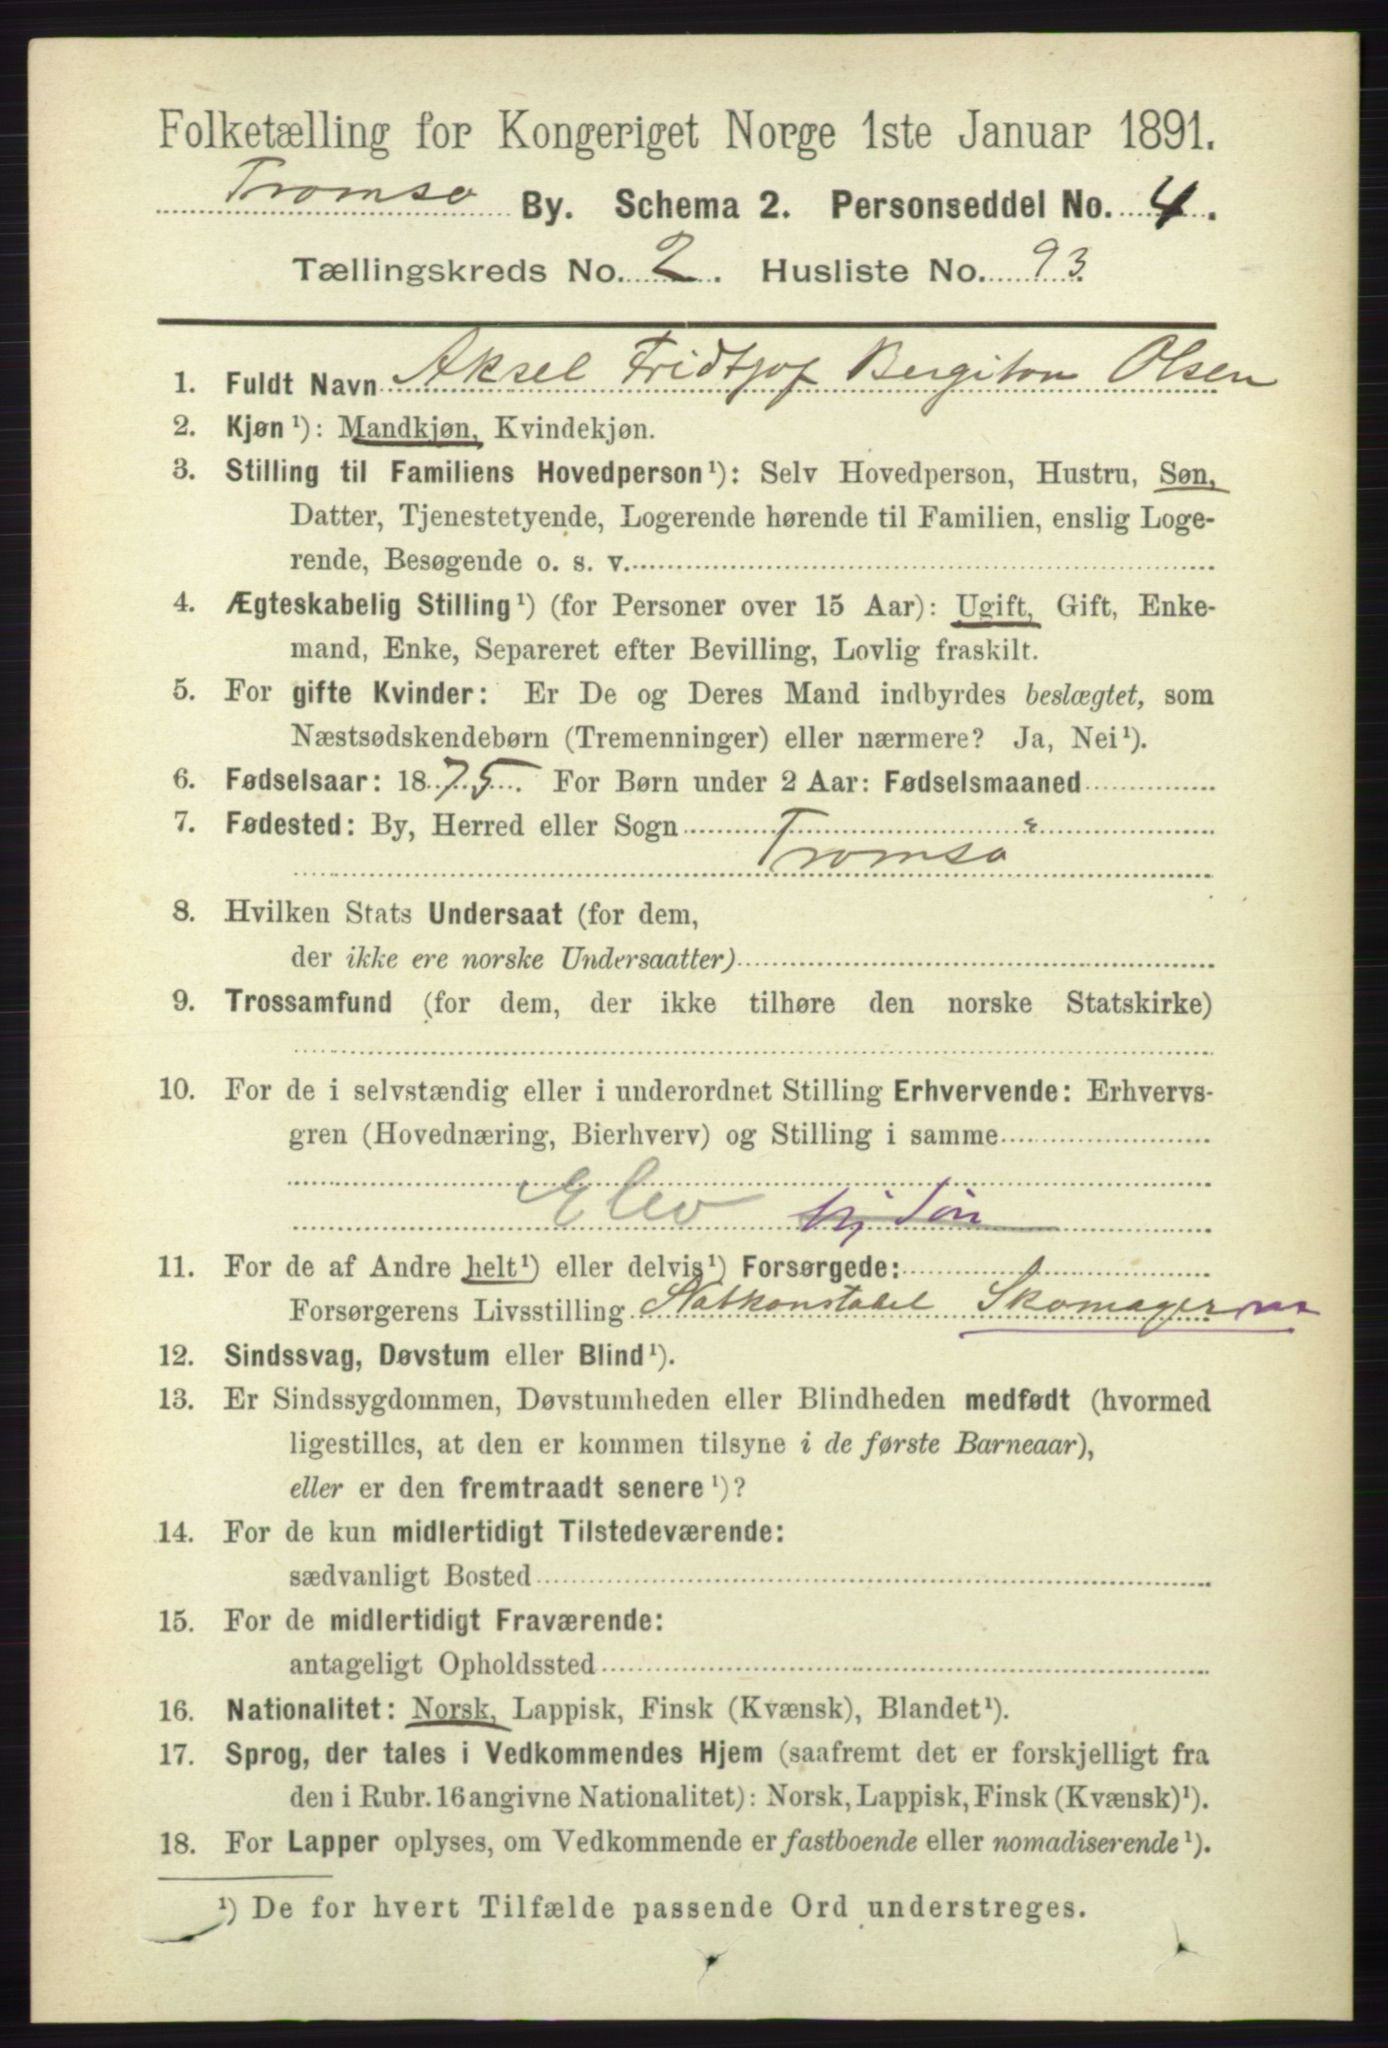 Folketælling for Kongeriget Norge 1ste Januar 1891.
Tromsø By. Schema 2. Personseddel No. 4.
Tællingskreds No. 2. Husliste No. 93
1. Fuldt Navn Aksel Fridtjof Olsen
2. Kjøn¹): Mandkjøn, Kvindekjøn.
3. Stilling til Familiens Hovedperson¹): Selv Hovedperson, Hustru, Søn,
Datter, Tjenestetyende, Logerende hørende til Familien, enslig Loge-
rende, Besøgende o. s. v.
4. Ægteskabelig Stilling¹) (for Personer over 15 Aar): Ugift, Gift, Enke-
mand, Enke, Separeret efter Bevilling, Lovlig fraskilt.
5. For gifte Kvinder: Er De og Deres Mand indbyrdes beslægtet, som
Næstsødskendebørn (Tremenninger) eller nærmere? Ja, Nei¹).
6. Fødselsaar: 1875. For Børn under 2 Aar: Fødselsmaaned
7. Fødested: By, Herred eller Sogn
Tromsø
8. Hvilken Stats Undersaat (for dem,
der ikke ere norske Undersaatter)
9. Trossamfund (for dem, der ikke tilhøre den norske Statskirke)
10. For de i selvstændig eller i underordnet Stilling Erhvervende: Erhvervs-
gren (Hovednæring, Bierhverv) og Stilling i samme
Elev hj. søn
11. For de af Andre helt¹) eller delvis¹) Forsørgede:
Forsørgerens Livsstilling Natkonstabel Skomager
12. Sindssvag, Døvstum eller Blind¹).
13. Er Sindssygdommen, Døvstumheden eller Blindheden medfødt (hvormed
ligestilles, at den er kommen tilsyne i de første Barneaar),
eller er den fremtraadt senere¹)?
14. For de kun midlertidigt Tilstedeværende:
sædvanligt Bosted
15. For de midlertidigt Fraværende:
antageligt Opholdssted
16. Nationalitet: Norsk, Lappisk, Finsk (Kvænsk), Blandet¹).
17. Sprog, der tales i Vedkommendes Hjem (saafremt det er forskjelligt fra
den i Rubr. 16 angivne Nationalitet): Norsk, Lappisk, Finsk (Kvænsk)¹).
18. For Lapper oplyses, om Vedkommende er fastboende eller nomadiserende¹).
¹) De for hvert Tilfælde passende Ord understreges.